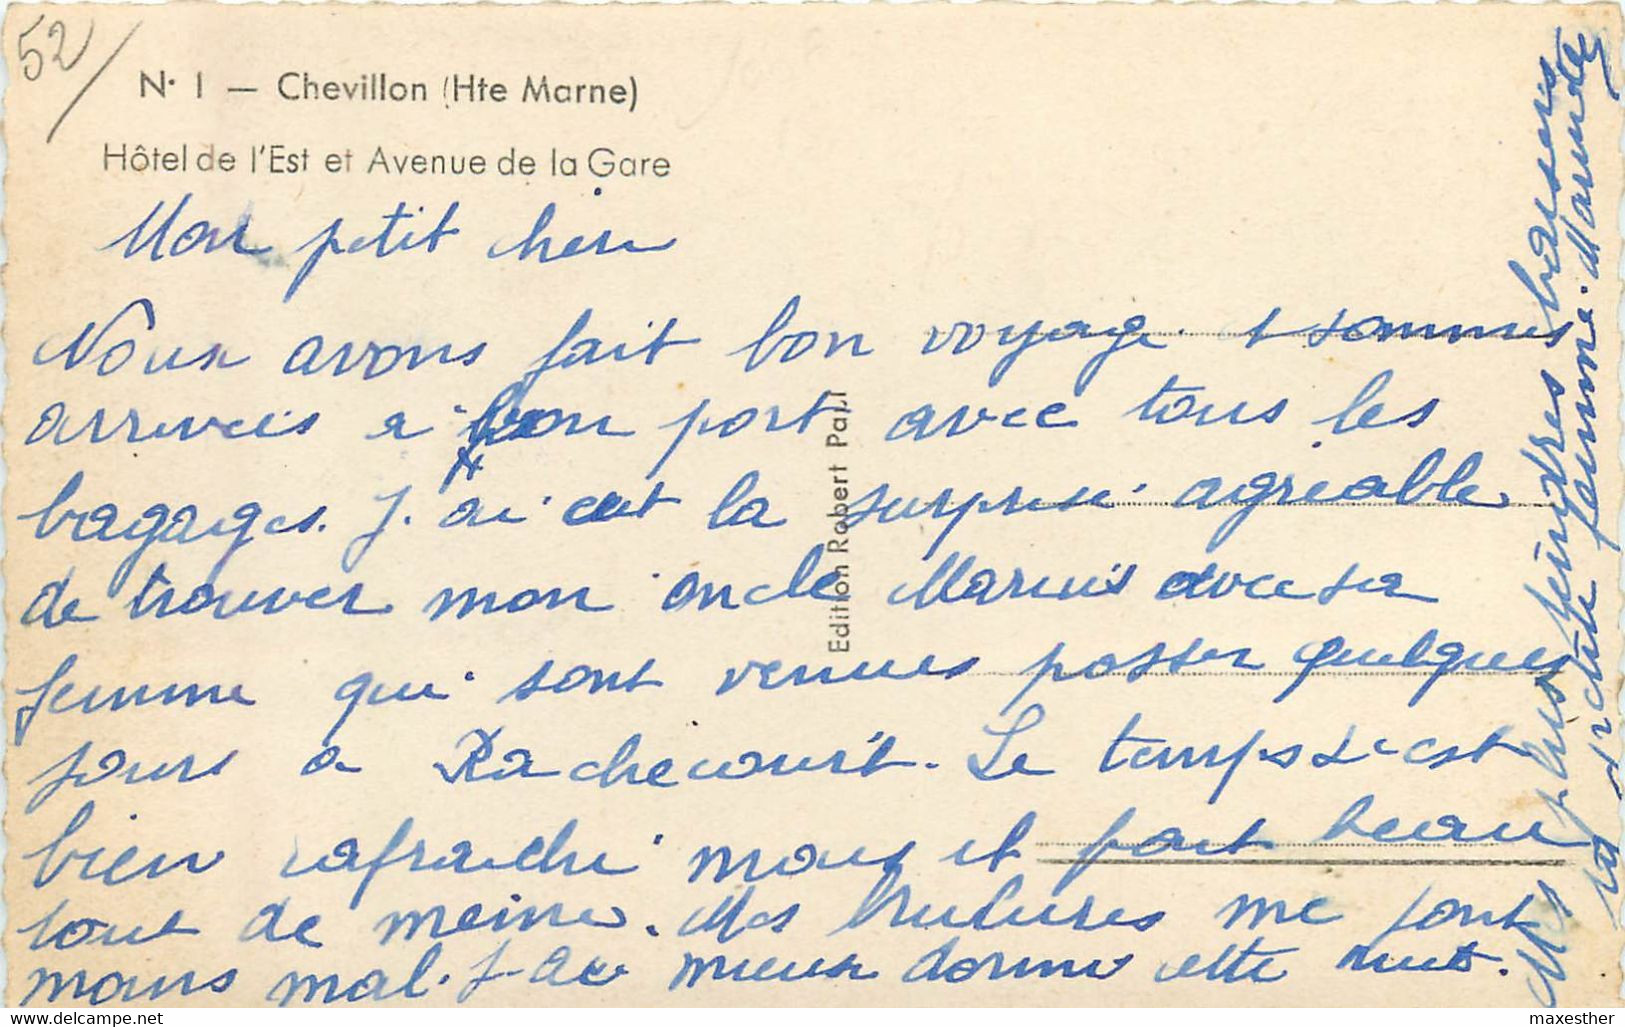 52
N· 1 — Chevillon (Hte Marne)
Hôtel de l'Est et Avenue de la Gare
Mon petit chéri
Nous avons fait bon voyage. et sommes
arrivées a bon port avec tous les
bagages. J. ai eut la surprise agréable
de trouver mon oncle Marius avec sa
femme qui sont venues passer quelques
jours a Rachecourt. Le temps s'est
bien rafraichi mais il fait beau
tout de meine. Mes brulures me font
moins mal. J-ai mieux dormi cette nuit.
Mes plus tendres baisers
ta petite femme. Marinette
Edition Robert Papi
maxesther